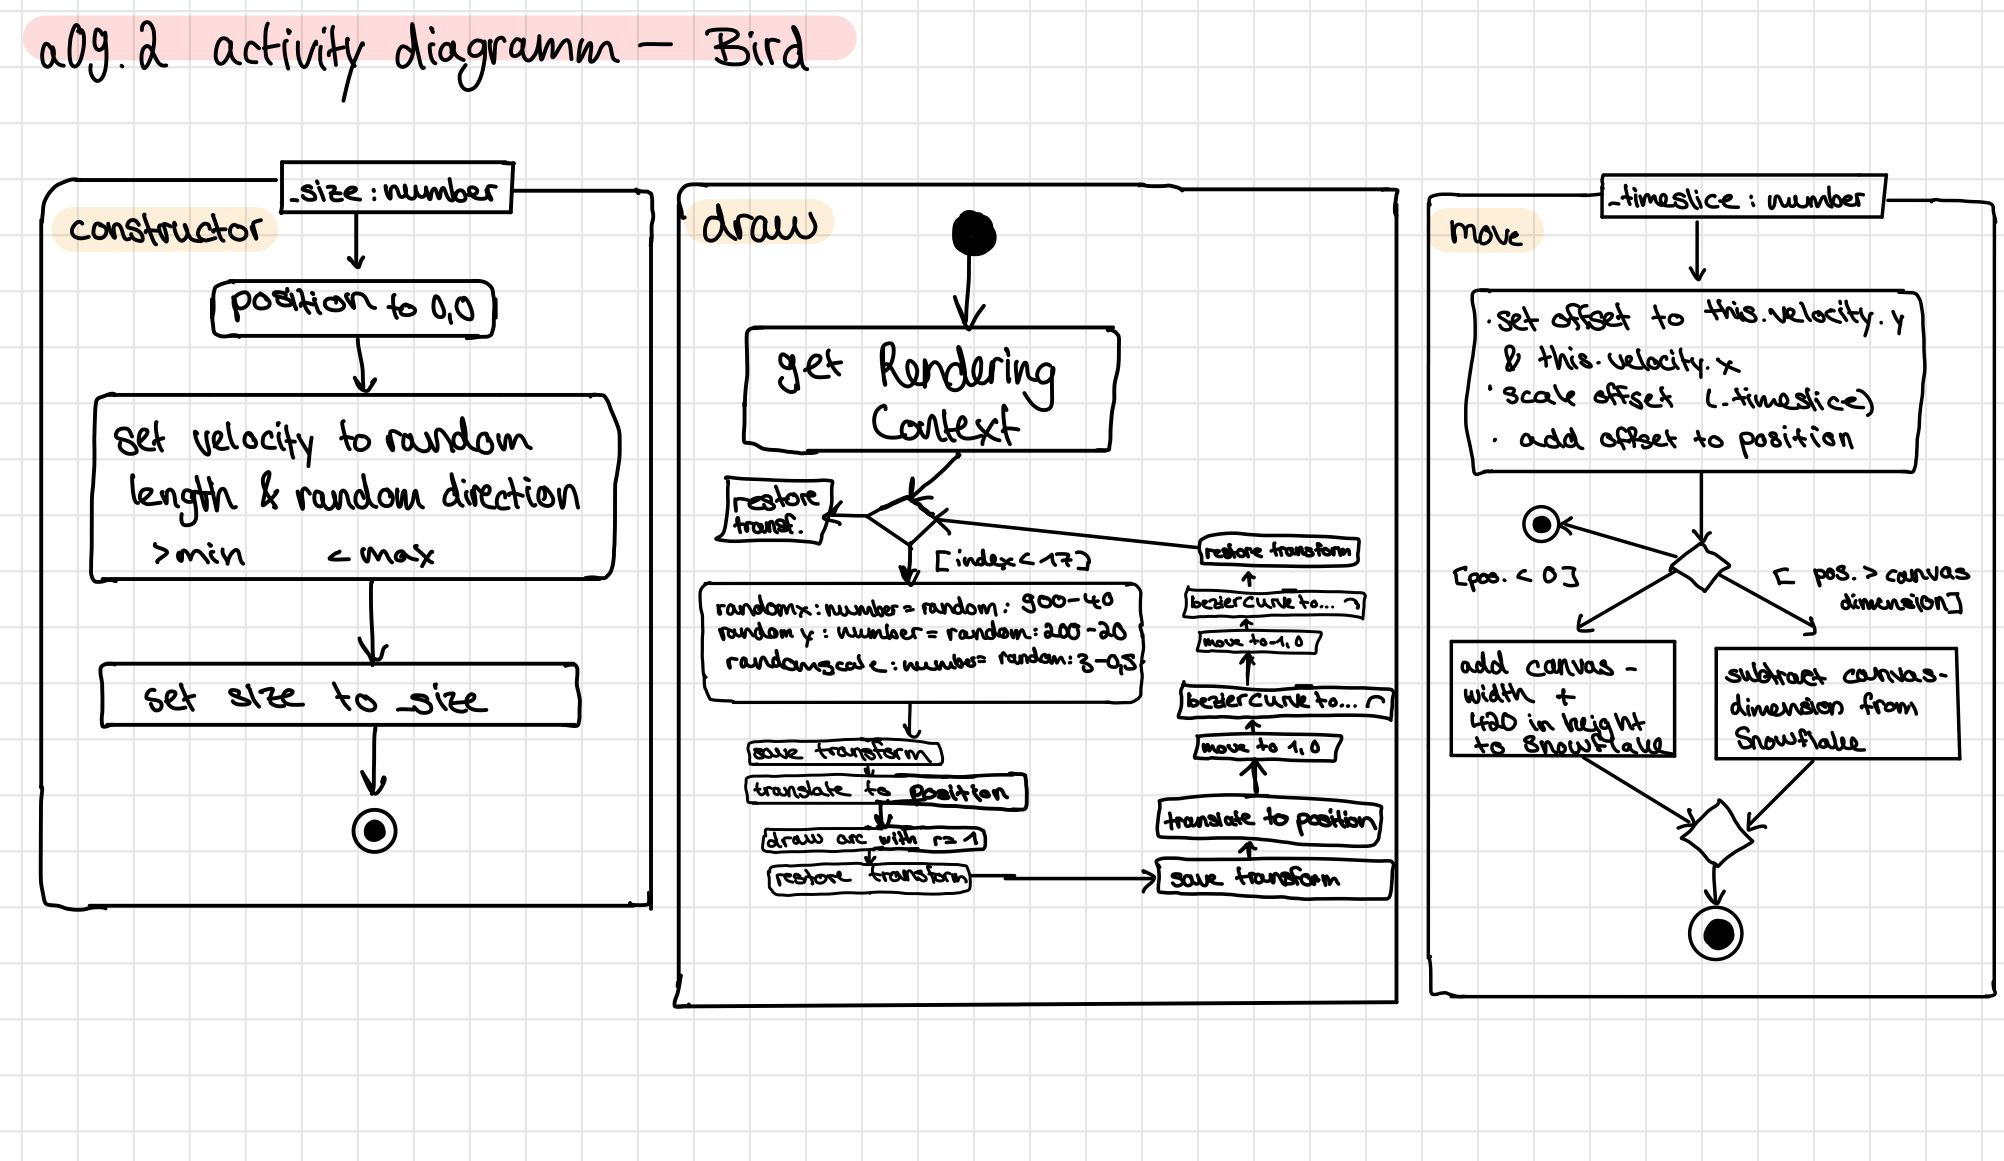 a09.2 activity diagramm – Bird
_size : number
constructor
position to 0,0
set velocity to random
length & random direction
>min <max
set size to _size
draw
get Rendering
Context
restore
transf.
[index < 17]
randomx : number = random : 900-40
randomy : number = random : 200-20
randomscale : number = random : 3-0,5
save transform
translate to position
draw arc with r=1
restore transform
save transform
translate to position
move to 1,0
bezierCurve to...
move to -1,0
bezierCurve to...
restore transform
_timeslice : number
move
· set offset to this.velocity.y
& this.velocity.x
· scale offset (_timeslice)
· add offset to position
[pos. < 0]
[ pos. > canvas
dimension]
add canvas -
width +
420 in height
to Snowflake
subtract canvas-
dimension from
Snowflake